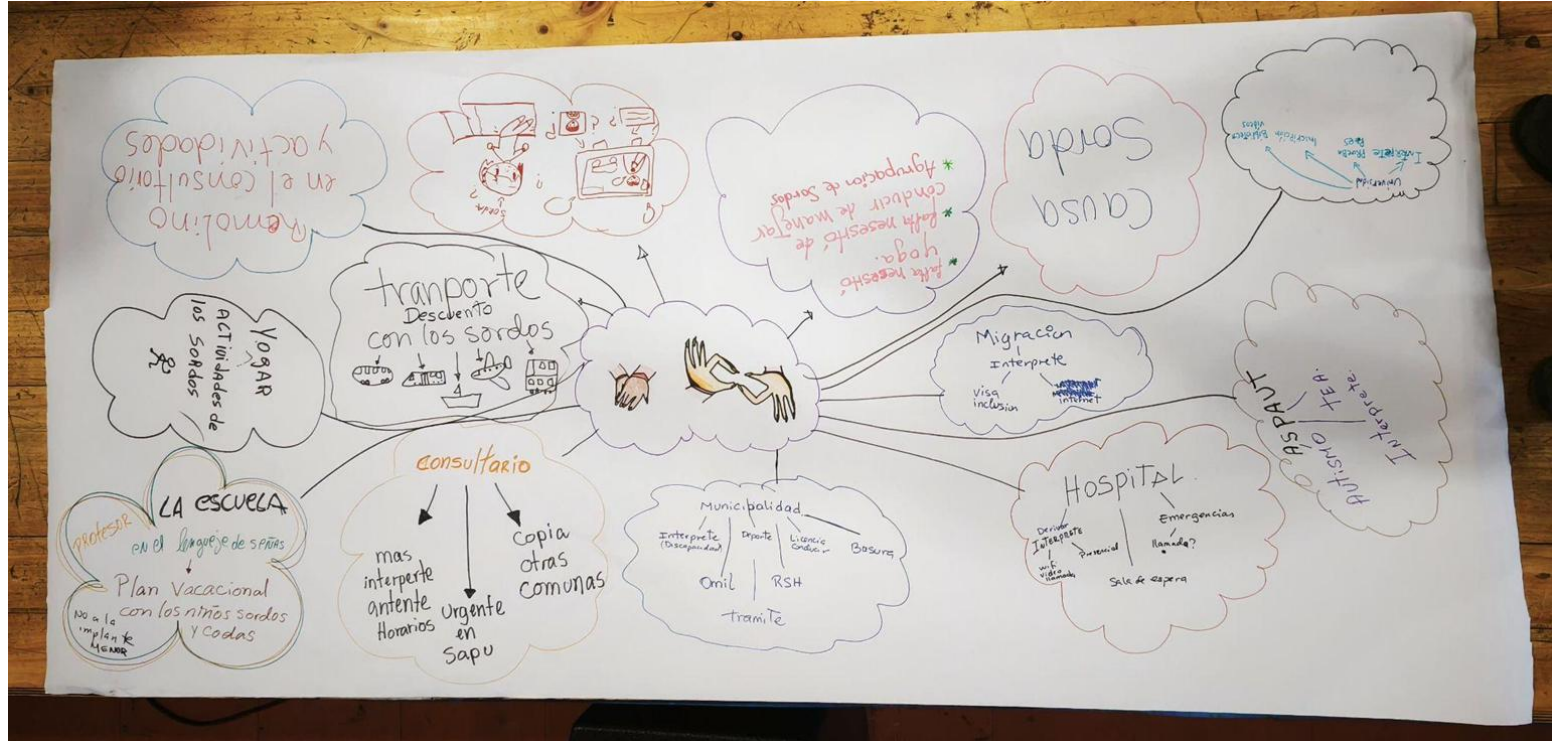 Remolino
en el consultorio
y actividades
SORDA
?
?
?
?
* falta nesesitó
yoga.
* falta nesesitó de
conducir de manejar
* Agrupación de Sordos
Causa
Sorda
Universidad
Interprete Prueba
PAES
Inscripción
Biblioteca
videos
tranporte
Descuento
con los sordos
Yogar
ACTIVIDADES de
los SORDOS
Migracion
Interprete
visa
inclusion
internet
ASPAUT
AUTISMO
TEA.
Interprete.
LA ESCUELA
PROFESOR
en el lengueje de señas
Plan Vacacional
con los niños sordos
y codas
No a la
implante
MENOR
Consultario
mas
interperte
antente
Horarios
Urgente
en
Sapu
Copia
otras
comunas
Municipalidad
Interprete
(Discapacidad)
Deporte
Licencia
conducir
Basura
Omil
RSH
tramite
HOSPITAL.
Derivar
INTERPRETE
wifi
video
llamada
Presencial
Sala de espera
Emergencias
llamada?